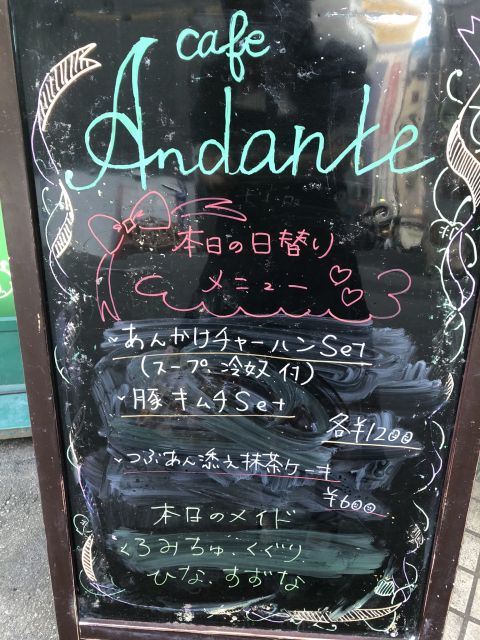 cafe
Andante
本日の日替り
メニュー
・あんかけチャーハンSet
(スープ 冷奴 付)
・豚キムチSet
各¥1200
・つぶあん添え抹茶ケーキ
¥600
本日のメイド
くろみちゅ、くぐり、
ひな、すずな